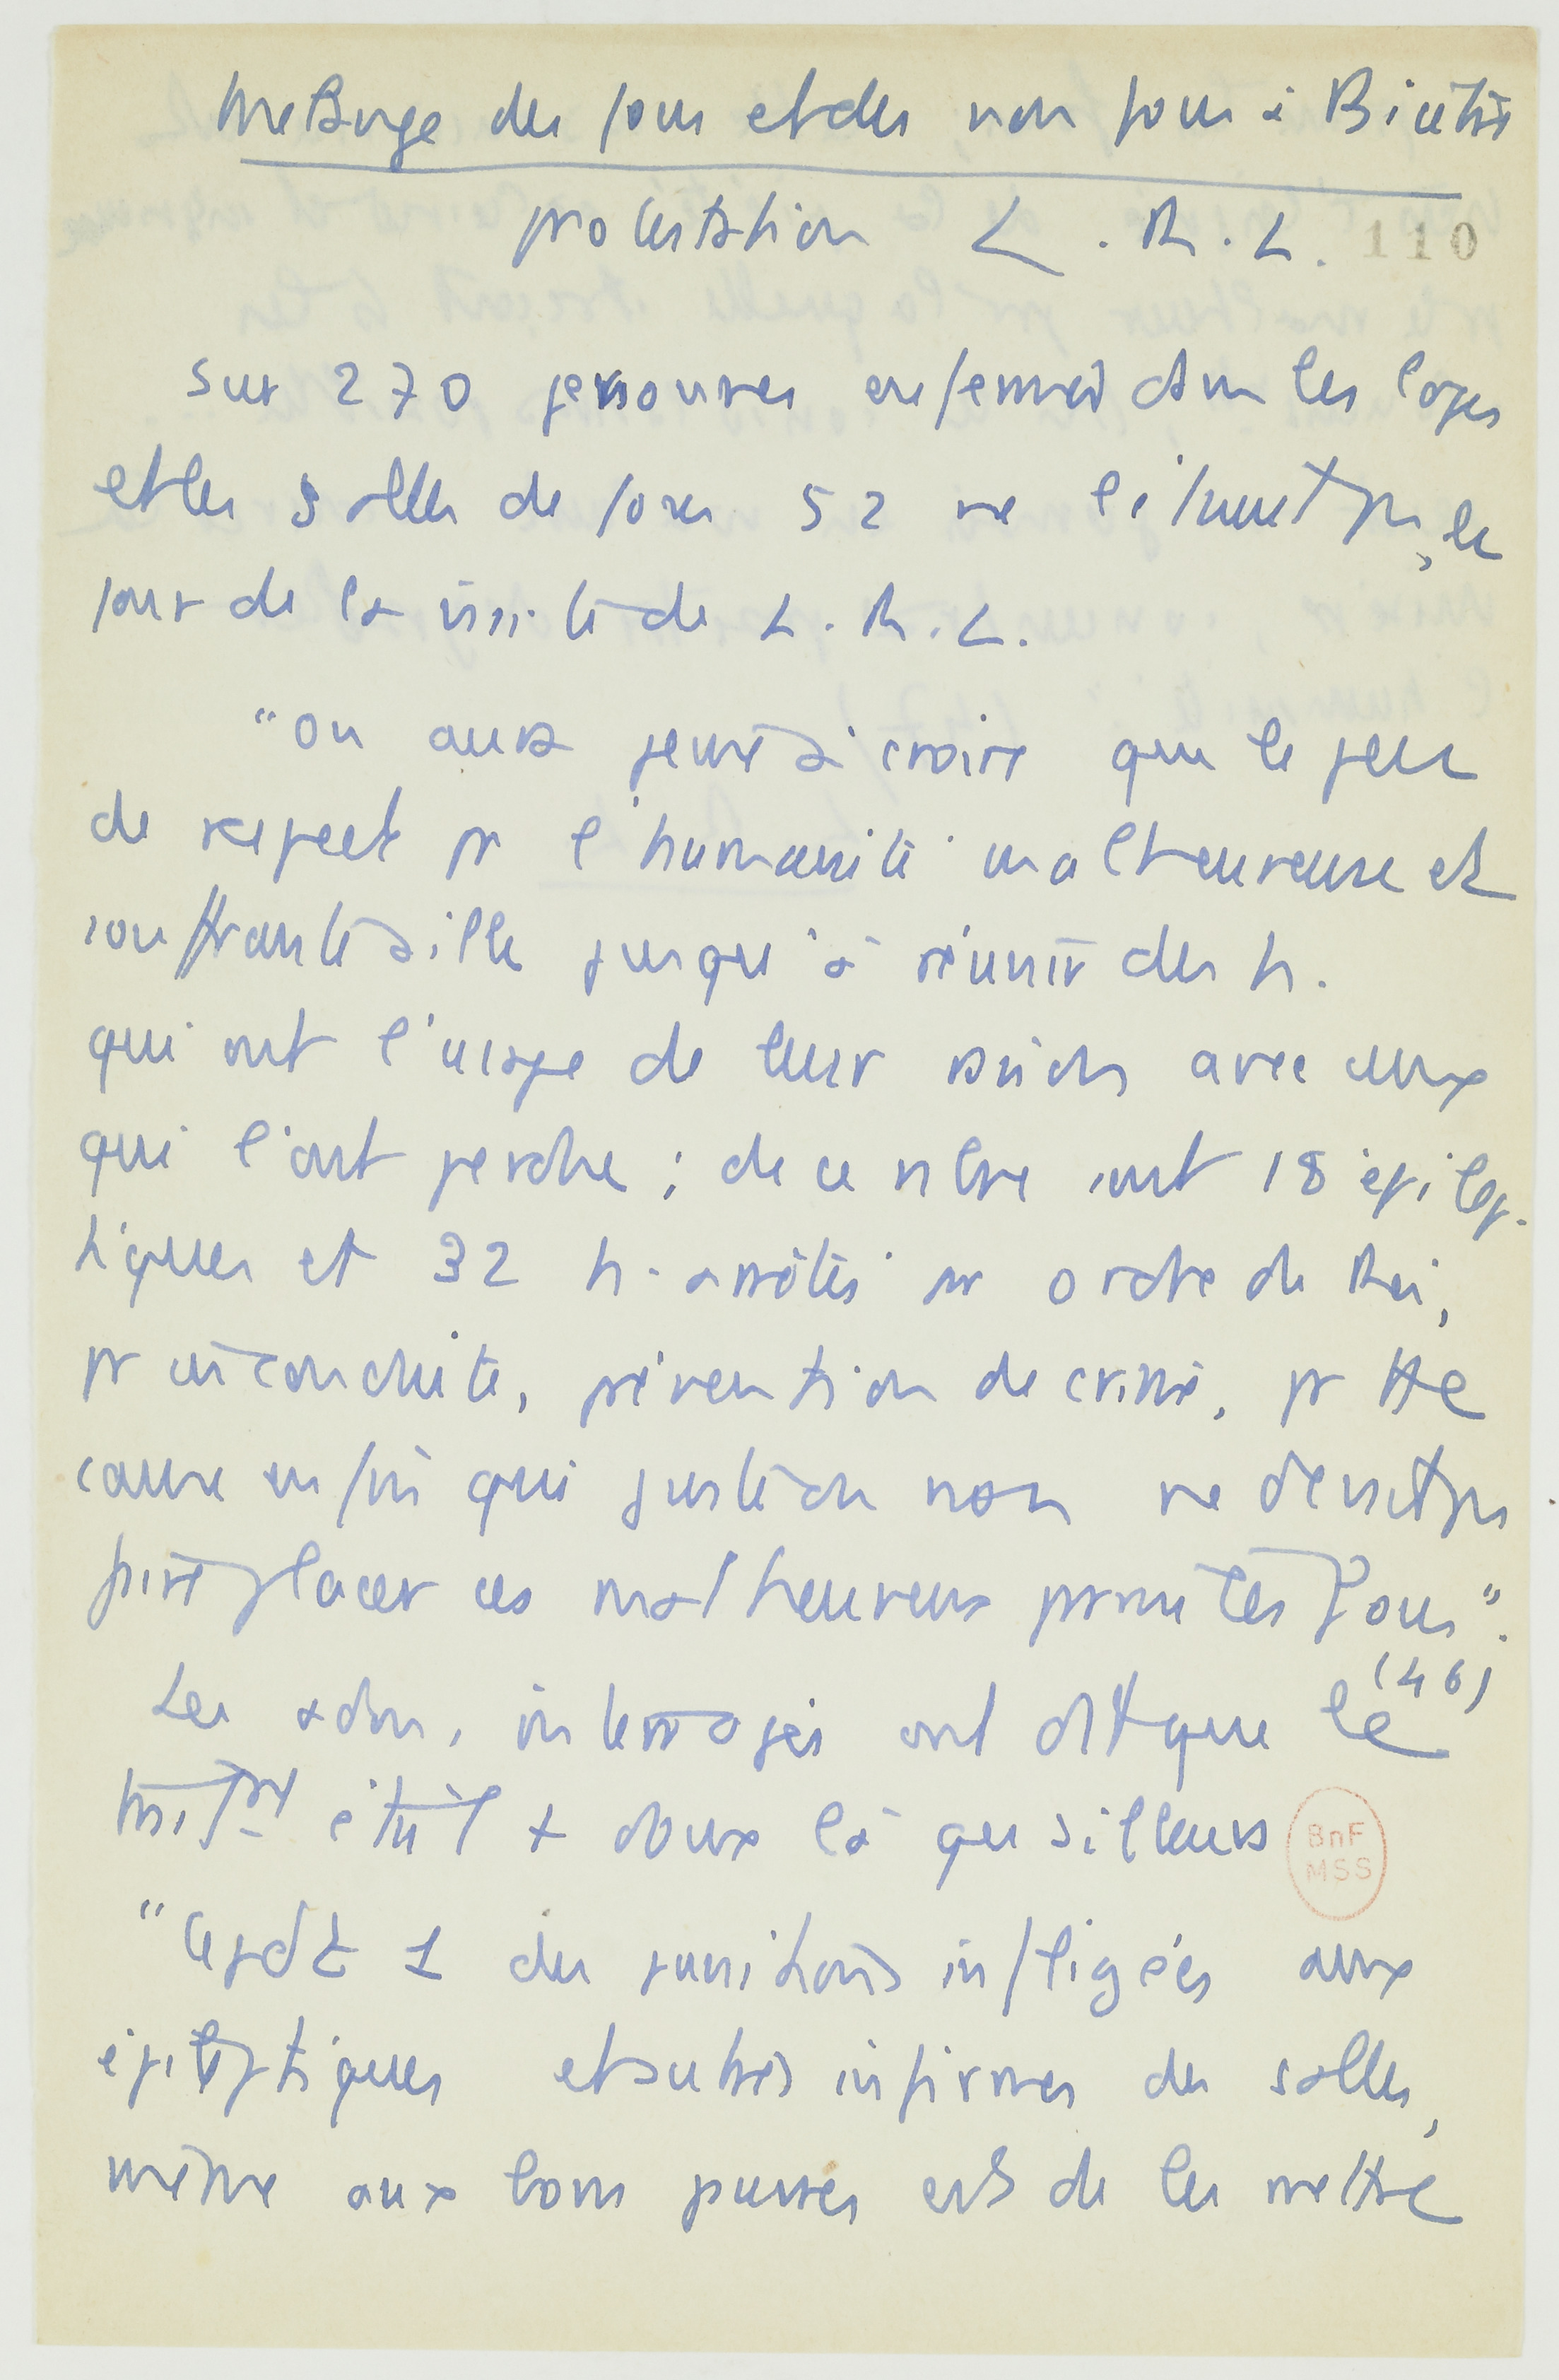 Melange des fous et des non fous à Bicêtre
protestation L. R. L.
110
Sur 270 personnes enfermées dans les loges
et les salles de fous 52 ne l'étaient pas, le
jour de la visite de L. R. L.
"on aura peine à croire que le peu
de respect pr l'humanité malheureuse et
souffrante aille jusqu'à réunir des h.
qui ont l'usage de leur raison avec ceux
qui l'ont perdue ; de ce nbre sont 18 épilep-
tiques et 32 h. arrêtés sr ordre du Roi,
pr inconduite, prévention de crime, pr tte
cause enfin qui juste ou non ne devrait pas
faire placer ces malheureux parmi les fous".
(46)
Les adm. interrogés ont dit que le
trait<sup>mt</sup> était + doux là qu'ailleurs
"Cepdt 1 des punitions infligées aux
épileptiques et autres infirmes des salles,
même aux bons pauvres est de les mettre
BnF
MSS